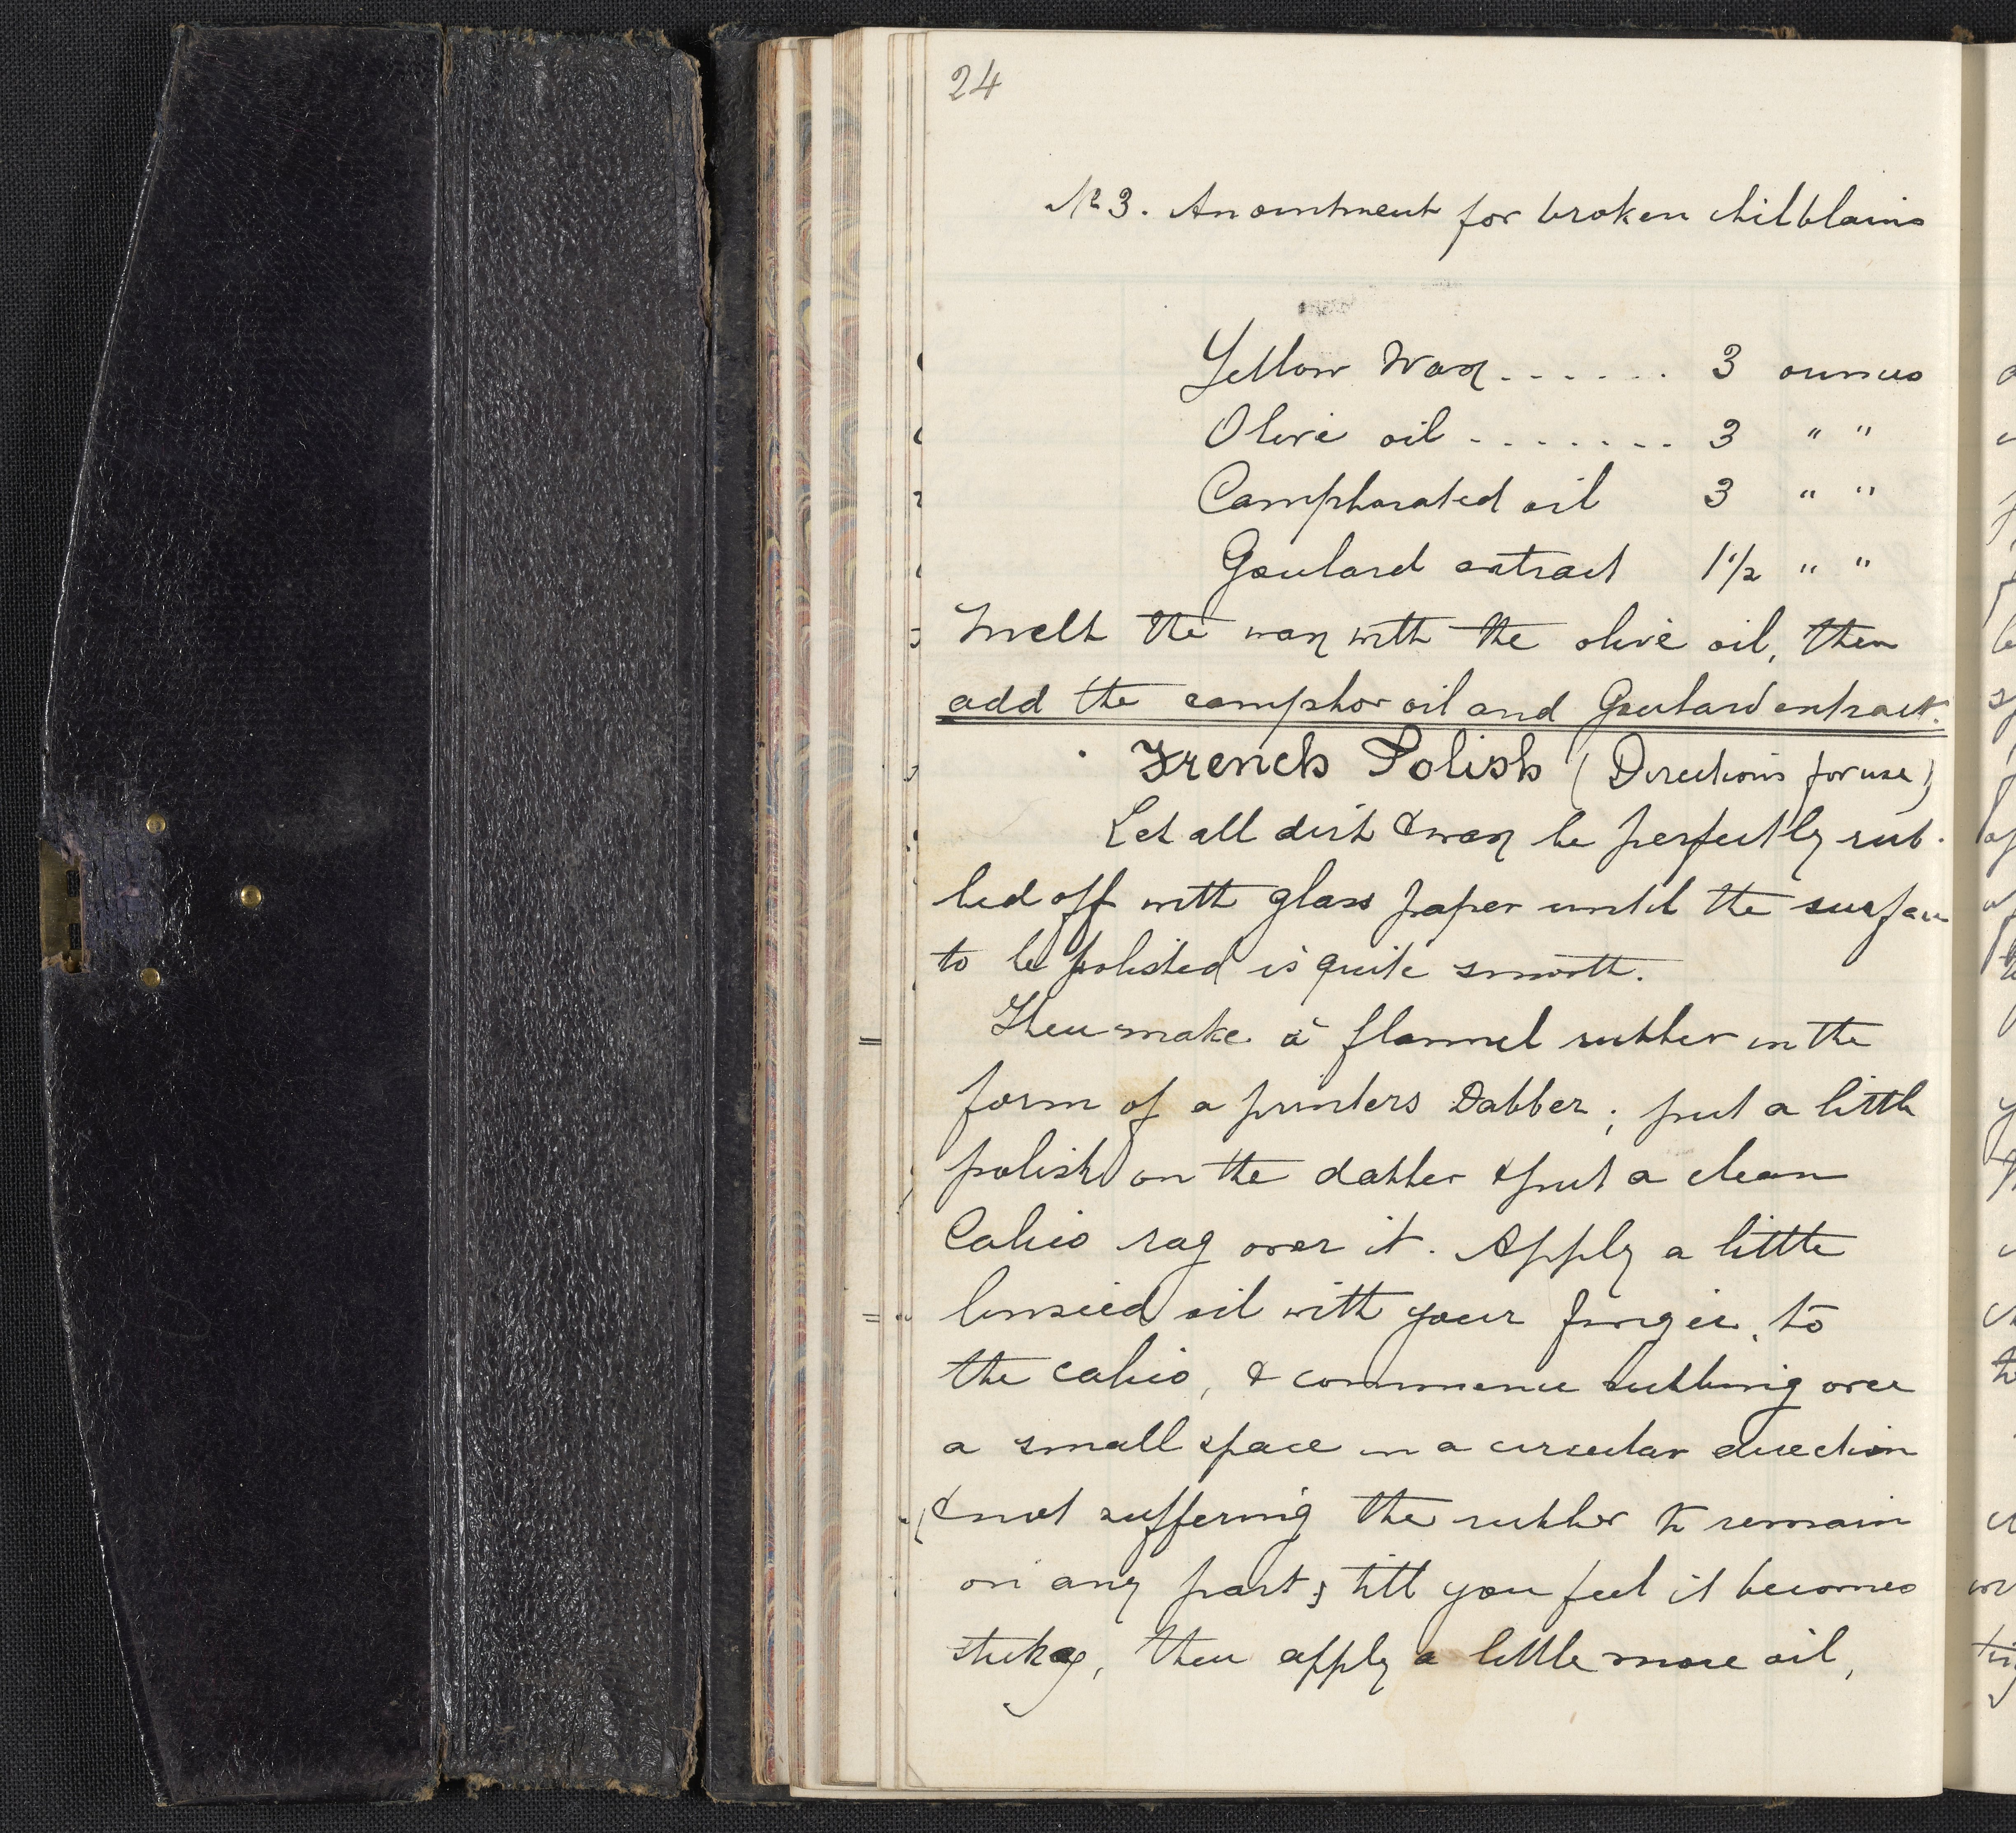 24
No 3. An ointment for broken chilblains
Yellow Wax . . . . . . 3 ounces
Olive oil . . . . . . . . 3 " "
Camphorated oil 3 " "
Goulard extract 1 1/2 " "
Melt the wax with the olive oil, then
add the camphor oil and Goulard extract.
French Polish (Directions for use)
Let all dirt & wax be perfectly rub-
bed off with glass paper until the surface
to be polished is quite smooth.
Then make a flannel rubber in the
form of a printers Dabber; put a little
polish on the dabber & put a clean
Calico rag over it. Apply a little
linseed oil with your finger, to
the calico, & commence rubbing over
a small space in a circular direction
& not suffering the rubber to remain
on any part; till you feel it becomes
sticky, then apply a little more oil,